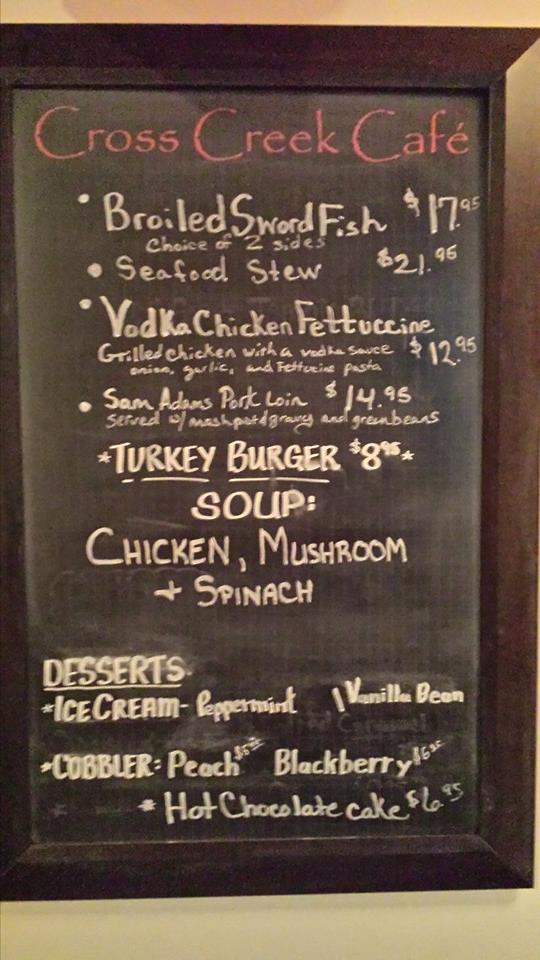 Cross Creek Café
• Broiled SwordFish $17.95
Choice of 2 sides
• Seafood Stew $21.95
• Vodka Chicken Fettuccine
Grilled chicken with a vodka sauce $12.95
onion, garlic, and Fettucine pasta
• Sam Adams Pork Loin $14.95
Served w/ mash pot/gravy and greenbeans
*TURKEY BURGER $8.95*
SOUP:
CHICKEN, MUSHROOM
+ SPINACH
DESSERTS
*ICE CREAM- Peppermint / Vanilla Bean
*COBBLER: Peach Blackberry
* Hot Chocolate cake $6.95